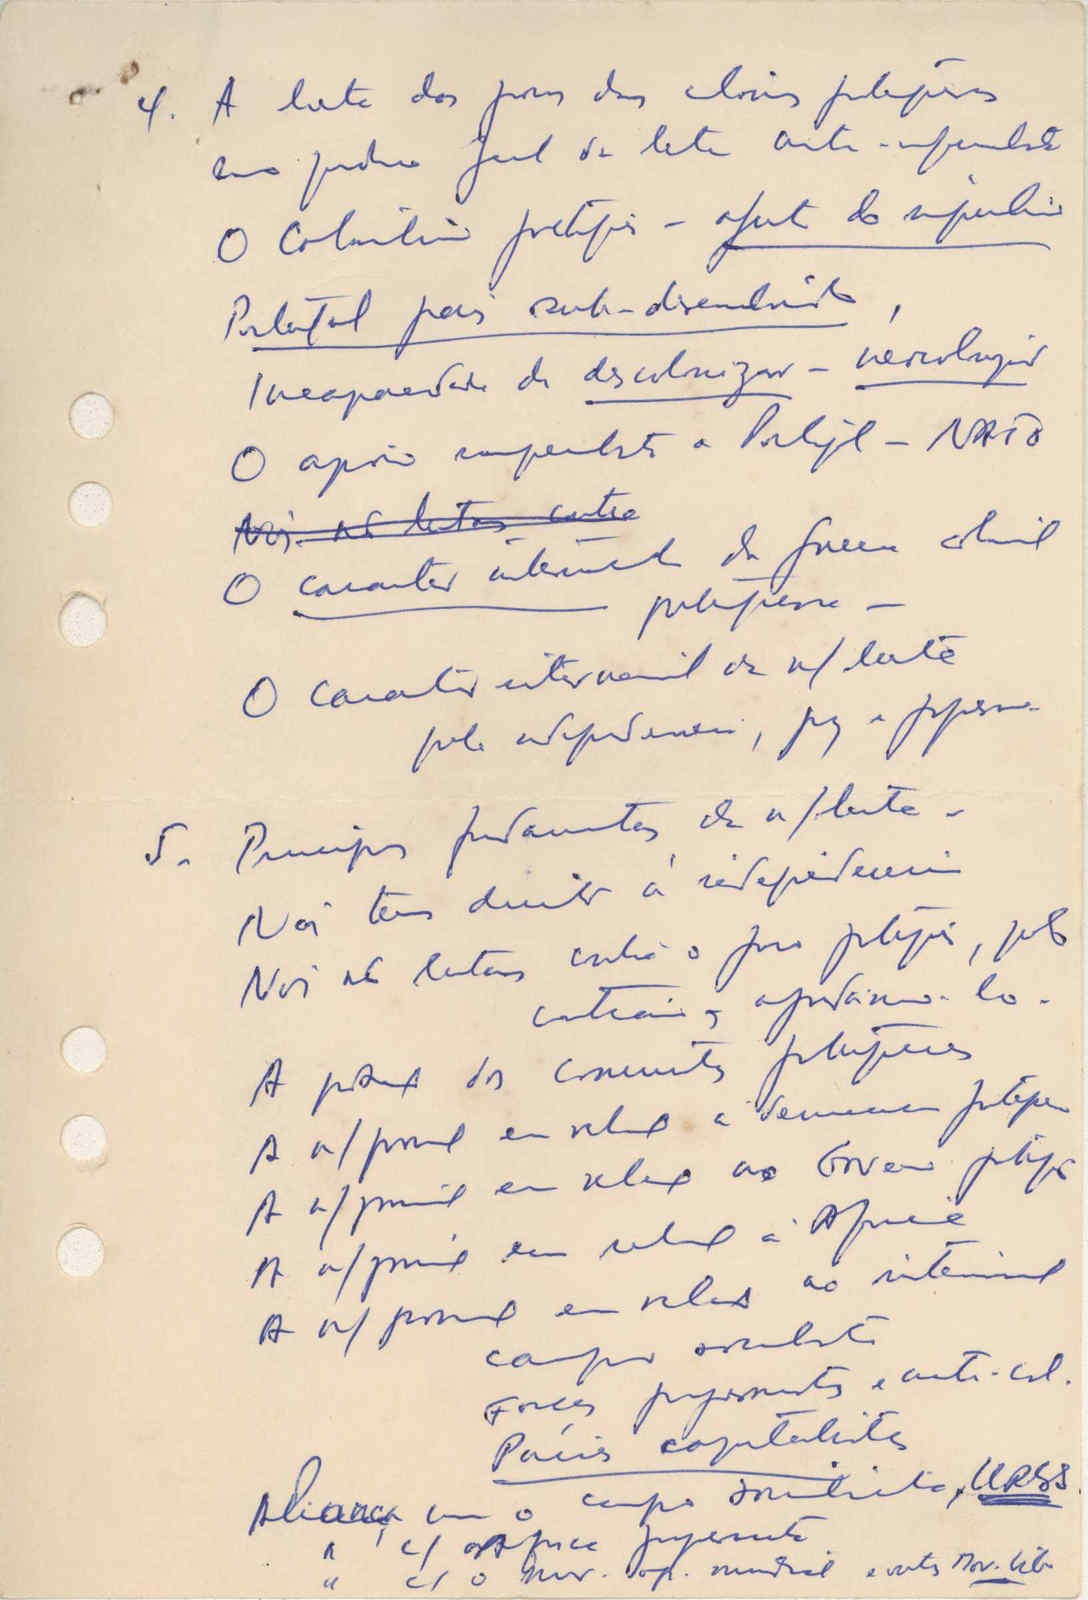 4. A luta dos povos das colónias portuguesas
no quadro geral da luta anti-imperialista
O Colonialismo português - agente do imperialismo
Portugal país sub-desenvolvido,
Incapacidade de descolonizar - neocolonizar
O apoio imperialista a Portugal - NATO
Nós não lutamos contra
O caracter internacional da guerra colonial
portuguesa -
O caracter internacional da n/ luta
pela independencia, paz e progresso
5. Principios fundamentais da n/ luta -
Nós temos direito à independencia
Nós não lutamos contra o povo português, pelo
contrario, ajudâmo-lo.
A posição dos comunistas portugueses
A n/ posição em relação a democracia portuguesa
A n/ posição em relação ao Governo português
A n/ posição em relação à Africa
A n/ posição em relação ao internacional
campo socialista
Forças progressistas e anti-col.
Países capitalistas
Aliança com o campo socialista, URSS
" c/ Africa progressista
" c/ o mov. op. mundial e outros Mov. Lib.